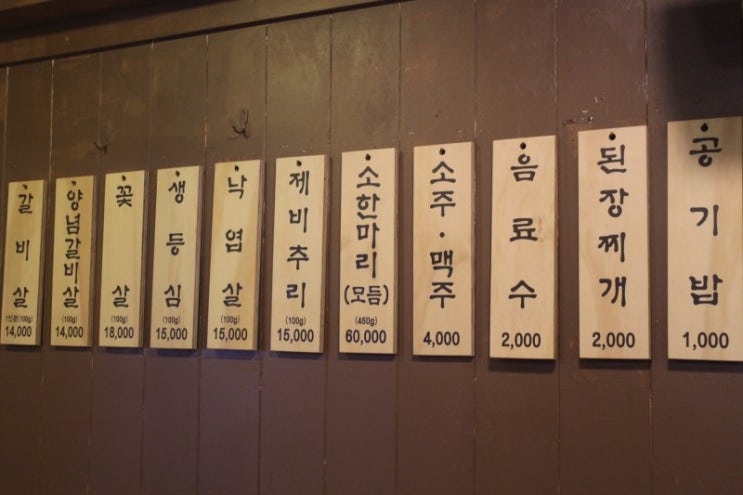 갈비살
1인분(100g)
14,000
양념갈비살
(100g)
14,000
꽃살
(100g)
18,000
생등심
(100g)
15,000
낙엽살
(100g)
15,000
제비추리
(100g)
15,000
소한마리
(모듬)
(450g)
60,000
소주·맥주
4,000
음료수
2,000
된장찌개
2,000
공기밥
1,000